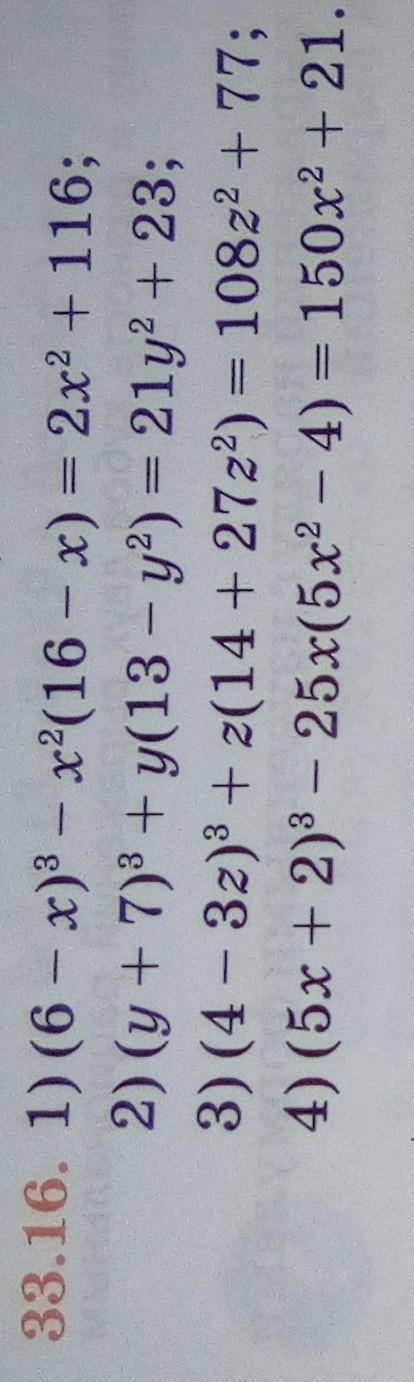 33.16. 1) (6 − x)³ − x²(16 − x) = 2x² + 116;
2) (y + 7)³ + y(13 − y²) = 21y² + 23;
3) (4 − 3z)³ + z(14 + 27z²) = 108z² + 77;
4) (5x + 2)³ − 25x(5x² − 4) = 150x² + 21.